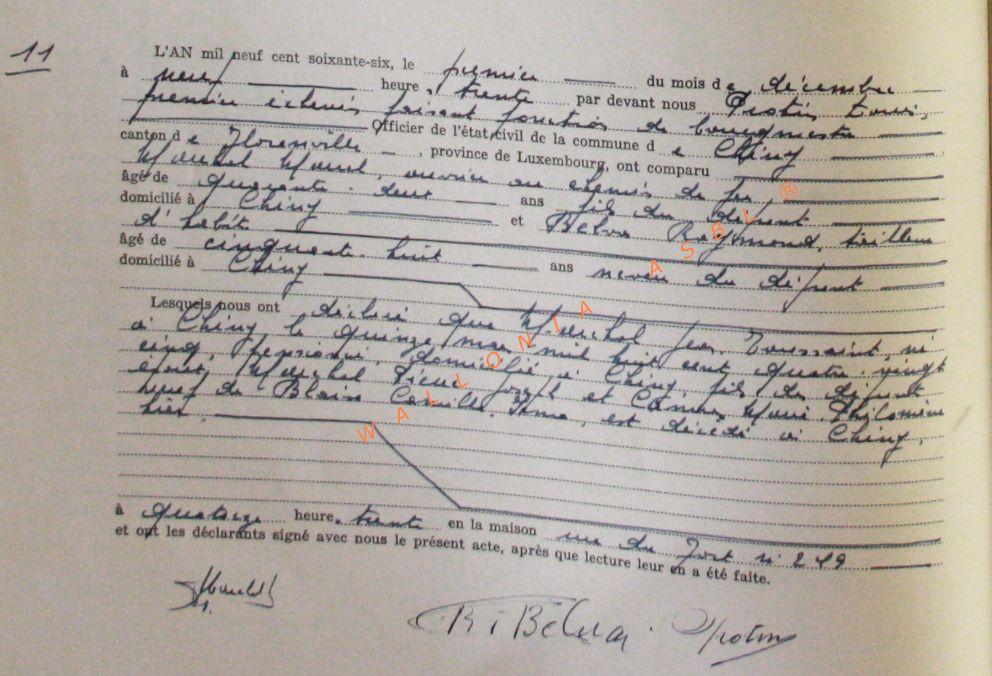 11
L'AN mil neuf cent soixante-six, le premier du mois de décembre
à neuf heure, trente par devant nous Protin Louis,
premier échevin faisant fonction de bourgmestre
Officier de l'état civil de la commune de Chiny
canton de Florenville, province de Luxembourg, ont comparu
Maréchal Marcel, ouvrier au chemin de fer,
âgé de quarante-deux ans fils du défunt
domicilié à Chiny et Raymond, tailleur
d'habits
âgé de cinquante-huit ans neveu du défunt
domicilié à Chiny
Lesquels nous ont déclaré que Maréchal Jean Toussaint, né
à Chiny le quinze mai mil huit cent quatre-vingt
cinq, pensionné, domicilié à Chiny, fils des défunts
époux, Maréchal Pierre Joseph et Marie Philomène
veuf de Camille, est décédé à Chiny,
hier
à quatorze heure, trente en la maison rue du Fort n° 249
et ont les déclarants signé avec nous le présent acte, après que lecture leur en a été faite.
WALLONIA ASBL ®